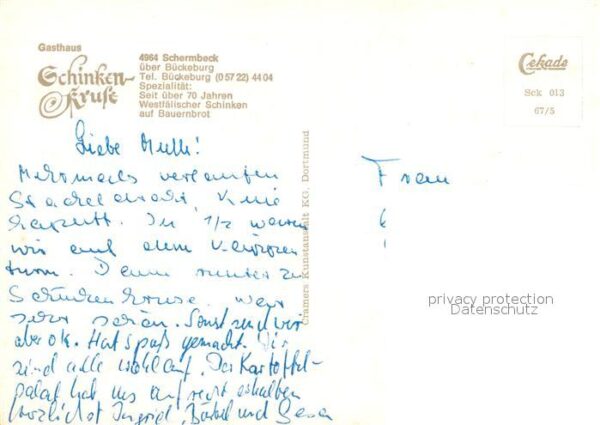 Gasthaus
Schinken-
Kruse
4964 Schermbeck
über Bückeburg
Tel. Bückeburg (0 57 22) 44 04
Spezialität:
Seit über 70 Jahren
Westfälischer Schinken
auf Bauernbrot
Cekade
Sck 013
67/5
Cramers Kunstanstalt KG. Dortmund
Liebe Mutti!
Mehrmals verlaufen
Stacheldraht, Knie
kaputt. In 1/2 waren
wir auf dem
turm. Dann runter zu
Schinkenkruse. War
sehr schön. Sonst sind wir
aber ok. Hat Spaß gemacht. Wir
sind alle wohlauf. Der Kartoffel-
salat hat uns aufrecht erhalten
Herzlichst Ingrid, Bärbel und
Frau
privacy protection
Datenschutz